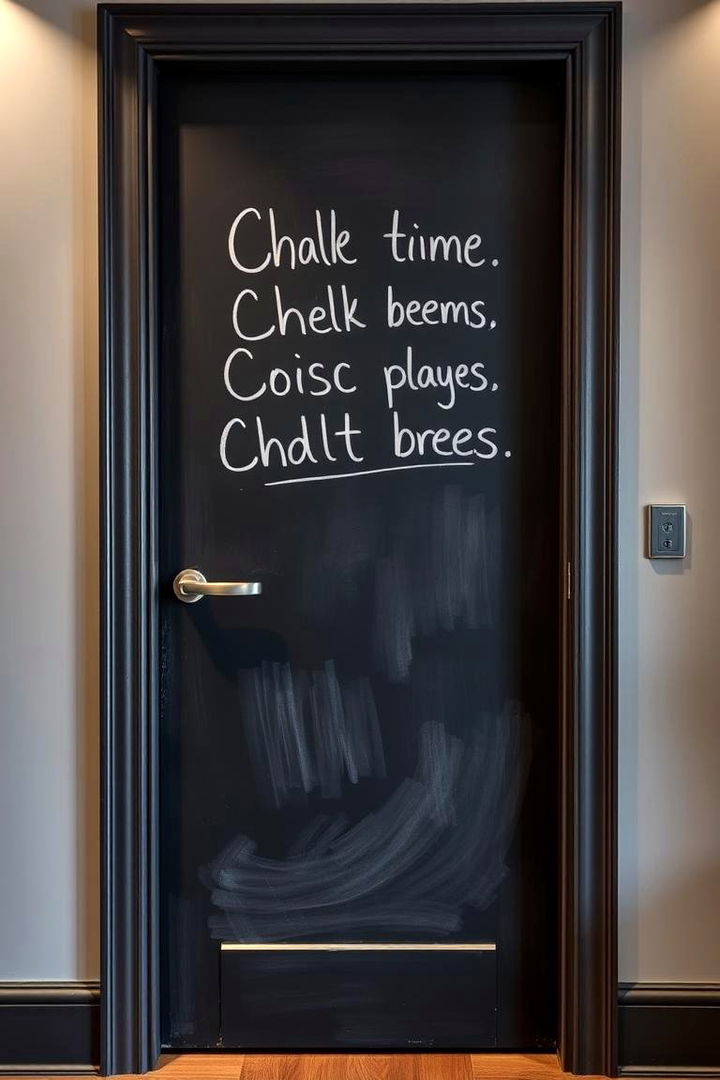 Chalk tiime.
Chelk beems.
Coisc playes.
Chdlt brees.